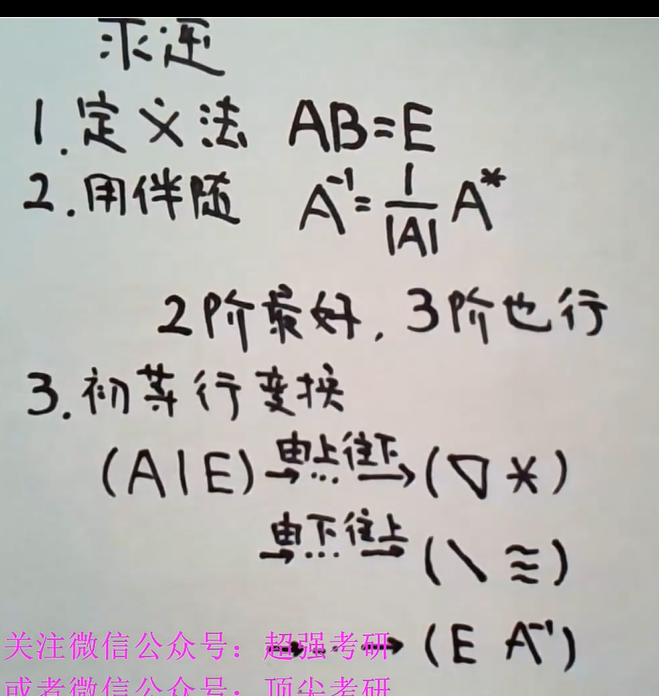 求逆
1.定义法 AB=E
2.用伴随 A⁻¹=1/|A| A*
2阶最好,3阶也行
3.初等行变换
(A|E) 由上往下→…→ (▽ *)
由下往上→…→ (\ ≋)
→…→ (E A⁻¹)
关注微信公众号:超强考研
或者微信公众号:顶尖考研